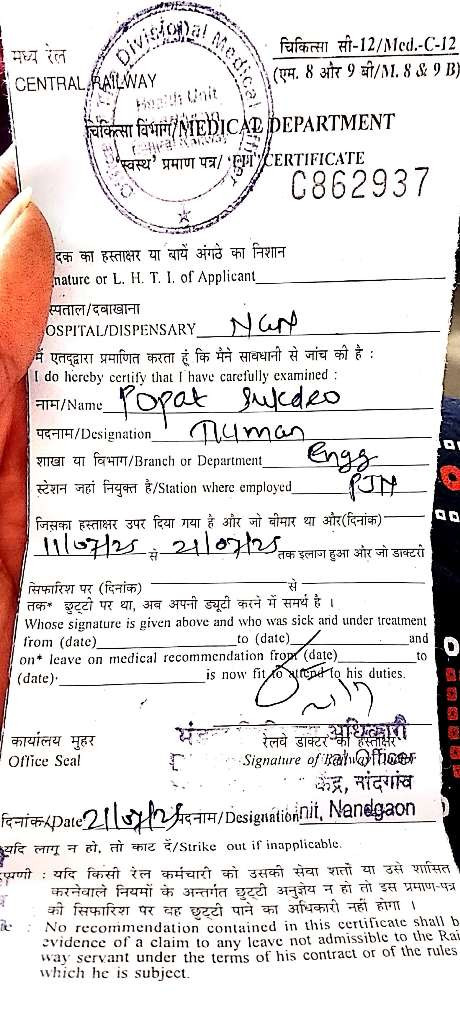 मध्य रेल
CENTRAL RAILWAY
चिकित्सा सी-12/Med.-C-12
(एम. 8 और 9 बी/M. 8 & 9 B)
Divisional Medical
Health Unit
चिकित्सा विभाग/MEDICAL DEPARTMENT
'स्वस्थ' प्रमाण पत्र/ 'FIT' CERTIFICATE
C862937
दक का हस्ताक्षर या बायें अंगठे का निशान
nature or L. H. T. I. of Applicant
स्पताल/दवाखाना
OSPITAL/DISPENSARY NGN
मैं एतद्द्वारा प्रमाणित करता हूं कि मैने सावधानी से जांच की है :
I do hereby certify that I have carefully examined :
नाम/Name Popat Sukdeo
पदनाम/Designation
शाखा या विभाग/Branch or Department Engg
स्टेशन जहां नियुक्त है/Station where employed PJN
जिसका हस्ताक्षर उपर दिया गया है और जो बीमार था और(दिनांक)
11/07/25 से 21/07/25 तक इलाज हुआ और जो डाक्टरी
सिफारिश पर (दिनांक) से
तक* छुट्टी पर था, अब अपनी ड्यूटी करने में समर्थ है ।
Whose signature is given above and who was sick and under treatment
from (date) to (date) and
on* leave on medical recommendation from (date) to
(date) is now fit to attend to his duties.
कार्यालय मुहर
Office Seal
अधिकारी
रेलवे डाक्टर का हस्ताक्षर
Signature of Railway
Officer
केंद्र, नांदगांव
दिनांक/Date 21/07/25 पदनाम/Designation
nit, Nandgaon
यदि लागू न हो, तो काट दें/Strike out if inapplicable.
प्पणी : यदि किसी रेल कर्मचारी को उसकी सेवा शर्तो या उसे शासित
करनेवाले नियमों के अन्तर्गत छुट्टी अनुज्ञेय न हो तो इस प्रमाण-पत्र
की सिफारिश पर वह छुट्टी पाने का अधिकारी नही होगा ।
: No recommendation contained in this certificate shall b
evidence of a claim to any leave not admissible to the Rai
way servant under the terms of his contract or of the rules
which he is subject.